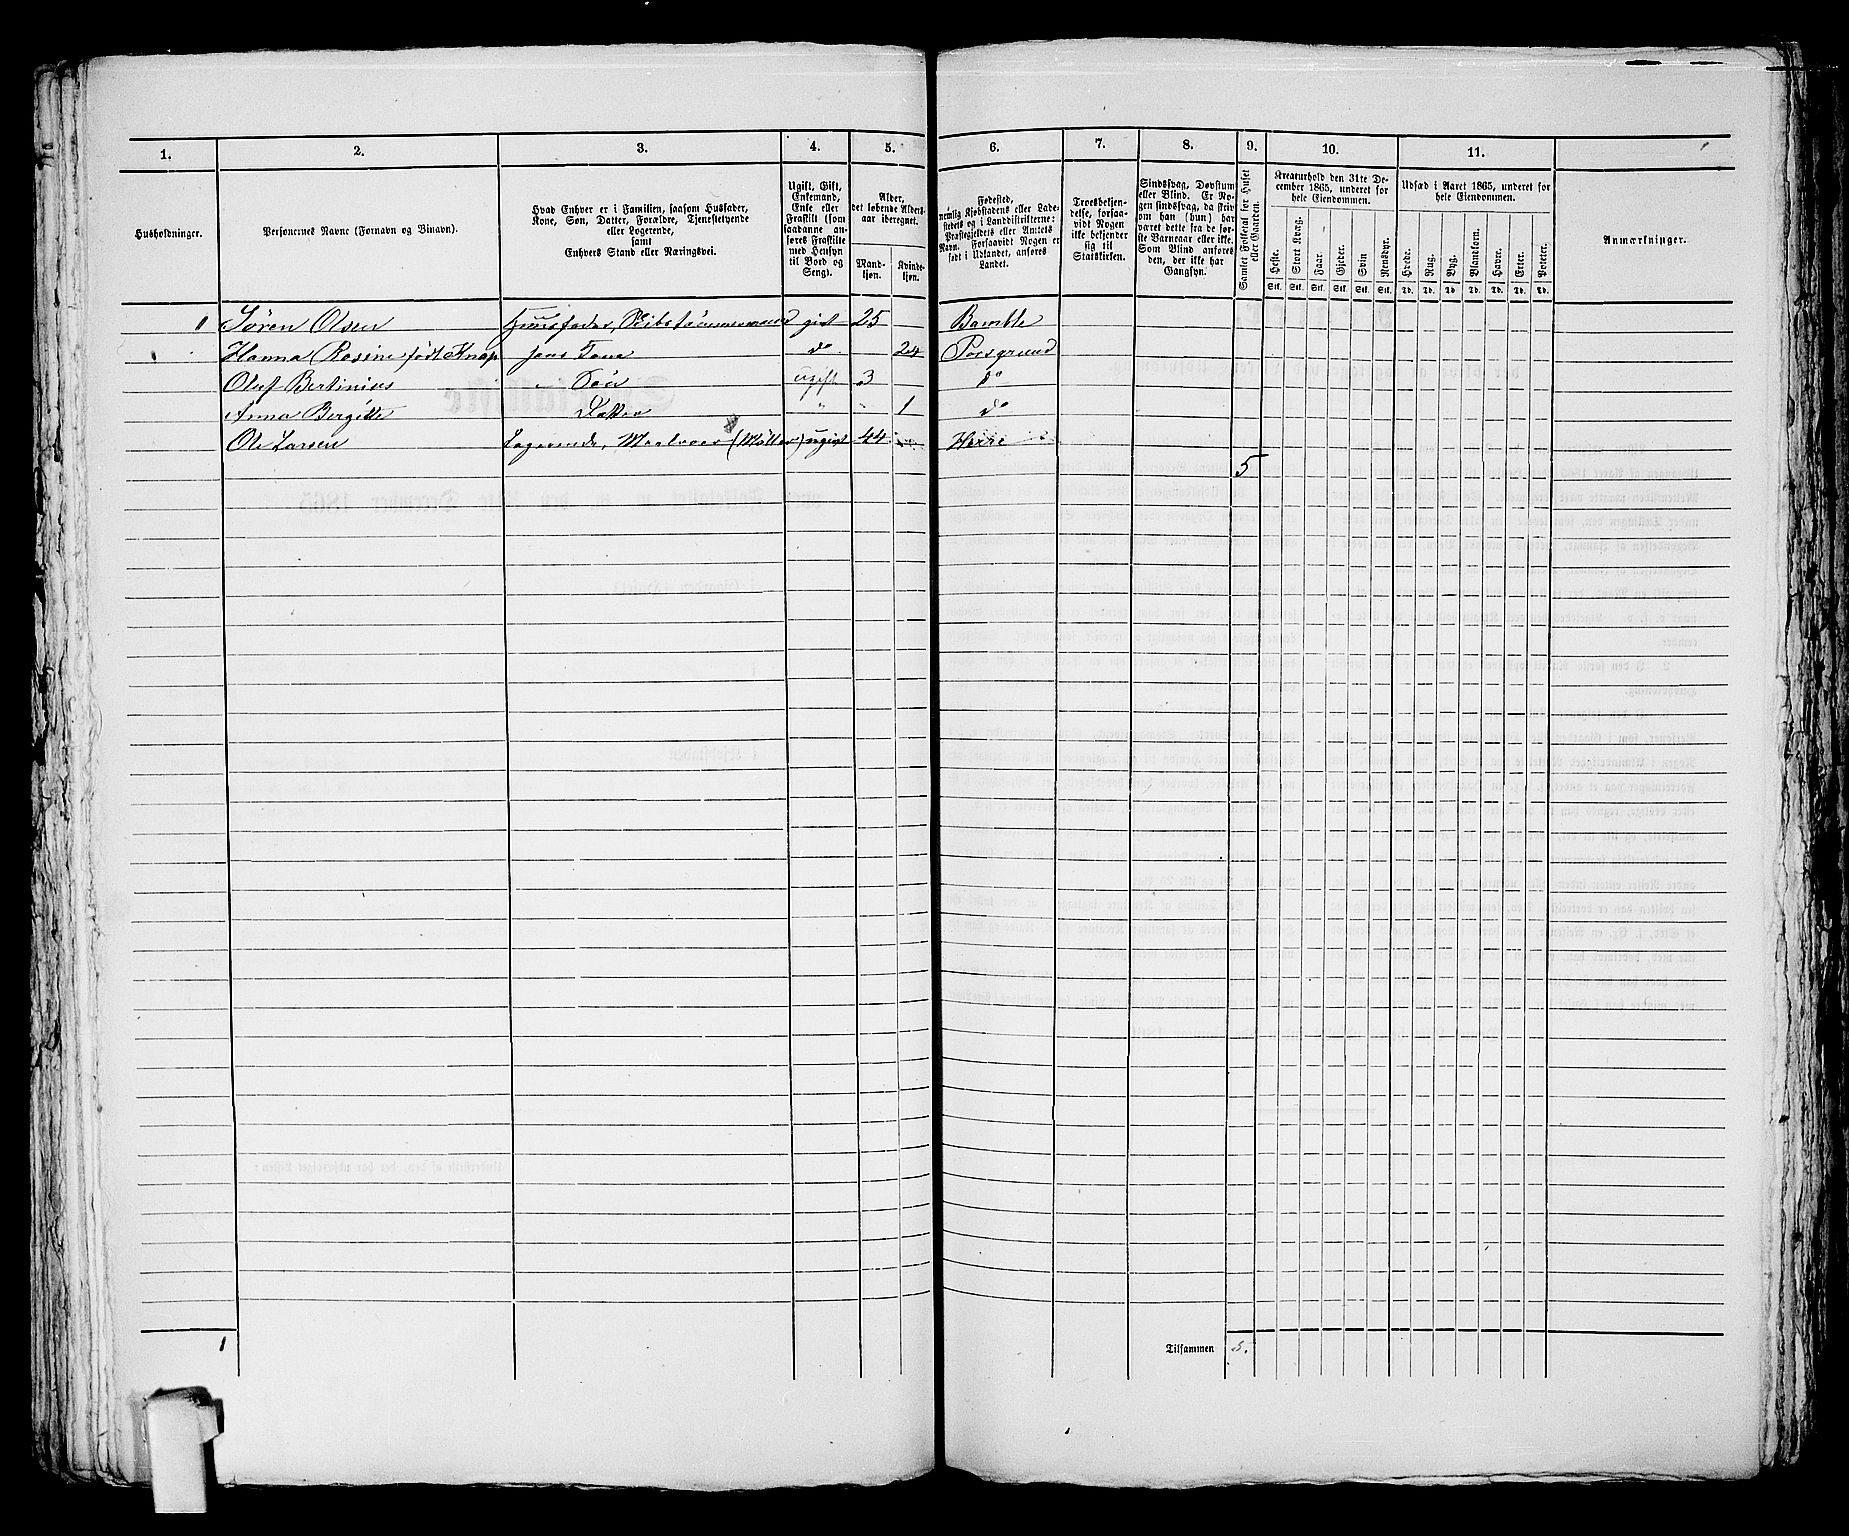 1. 2. 3. 4. 5. 6. 7. 8. 9. 10. 11.
Husholdninger.
Personernes Navne (Fornavn og Binavn).
Hvad Enhver er i Familien, saasom Husfader,
Kone, Søn, Datter, Forældre, Tjenestetyende
eller Logerende,
samt
Enhvers Stand eller Næringsvei.
Ugift, Gift,
Enkemand,
Enke eller
Fraskilt (som
saadanne an-
føres Fraskilte
med Hensyn
til Bord og
Seng).
Alder,
det løbende Alders-
aar iberegnet.
Mand-
kjøn.
Kvinde-
kjøn.
Fødested,
nemlig Kjøbstadens eller Lade-
stedets og i Landdistrikterne:
Præstegjeldets eller Amtets
Navn. Forsaavidt Nogen er
født i Udlandet, anføres
Landet.
Troesbekjen-
delse, forsaa-
vidt Nogen
ikke bekjender
sig til
Statskirken.
Sindssvag, Døvstum
eller Blind. Er No-
gen sindssvag, da skriv
om han (hun) har
været dette fra de før-
ste Barneaar eller ikke.
Som Blind anføres
den, der ikke har
Gangsyn.
Samlet Folketal for Huset
eller Gaarden.
Kreaturhold den 31te De-
cember 1865, underet for
hele Eiendommen.
Heste. Stort Kvæg. Faar. Gjeder. Svin Rensdyr.
Stk. Stk. Stk. Stk. Stk. Stk.
Udsæd i Aaret 1865, underet for
hele Eiendommen.
Hvede. Rug. Byg. Blandkorn. Havre. Erter. Poteter.
Td. Td. Td. Td. Td. Td. Td.
Anmærkninger.
1 Søren Olsen Huusfader, Skibstømmermand gift 25 Bamble
Hanna Rosine født Knap hans Kone do 24 Porsgrund
Oluf Bertinius Søn ugift 3 do
Anna Bergitte Datter " 1 do
Ole Larsen Logerende, (Møller) ugift 44 Herre
5
1 Tilsammen 5.